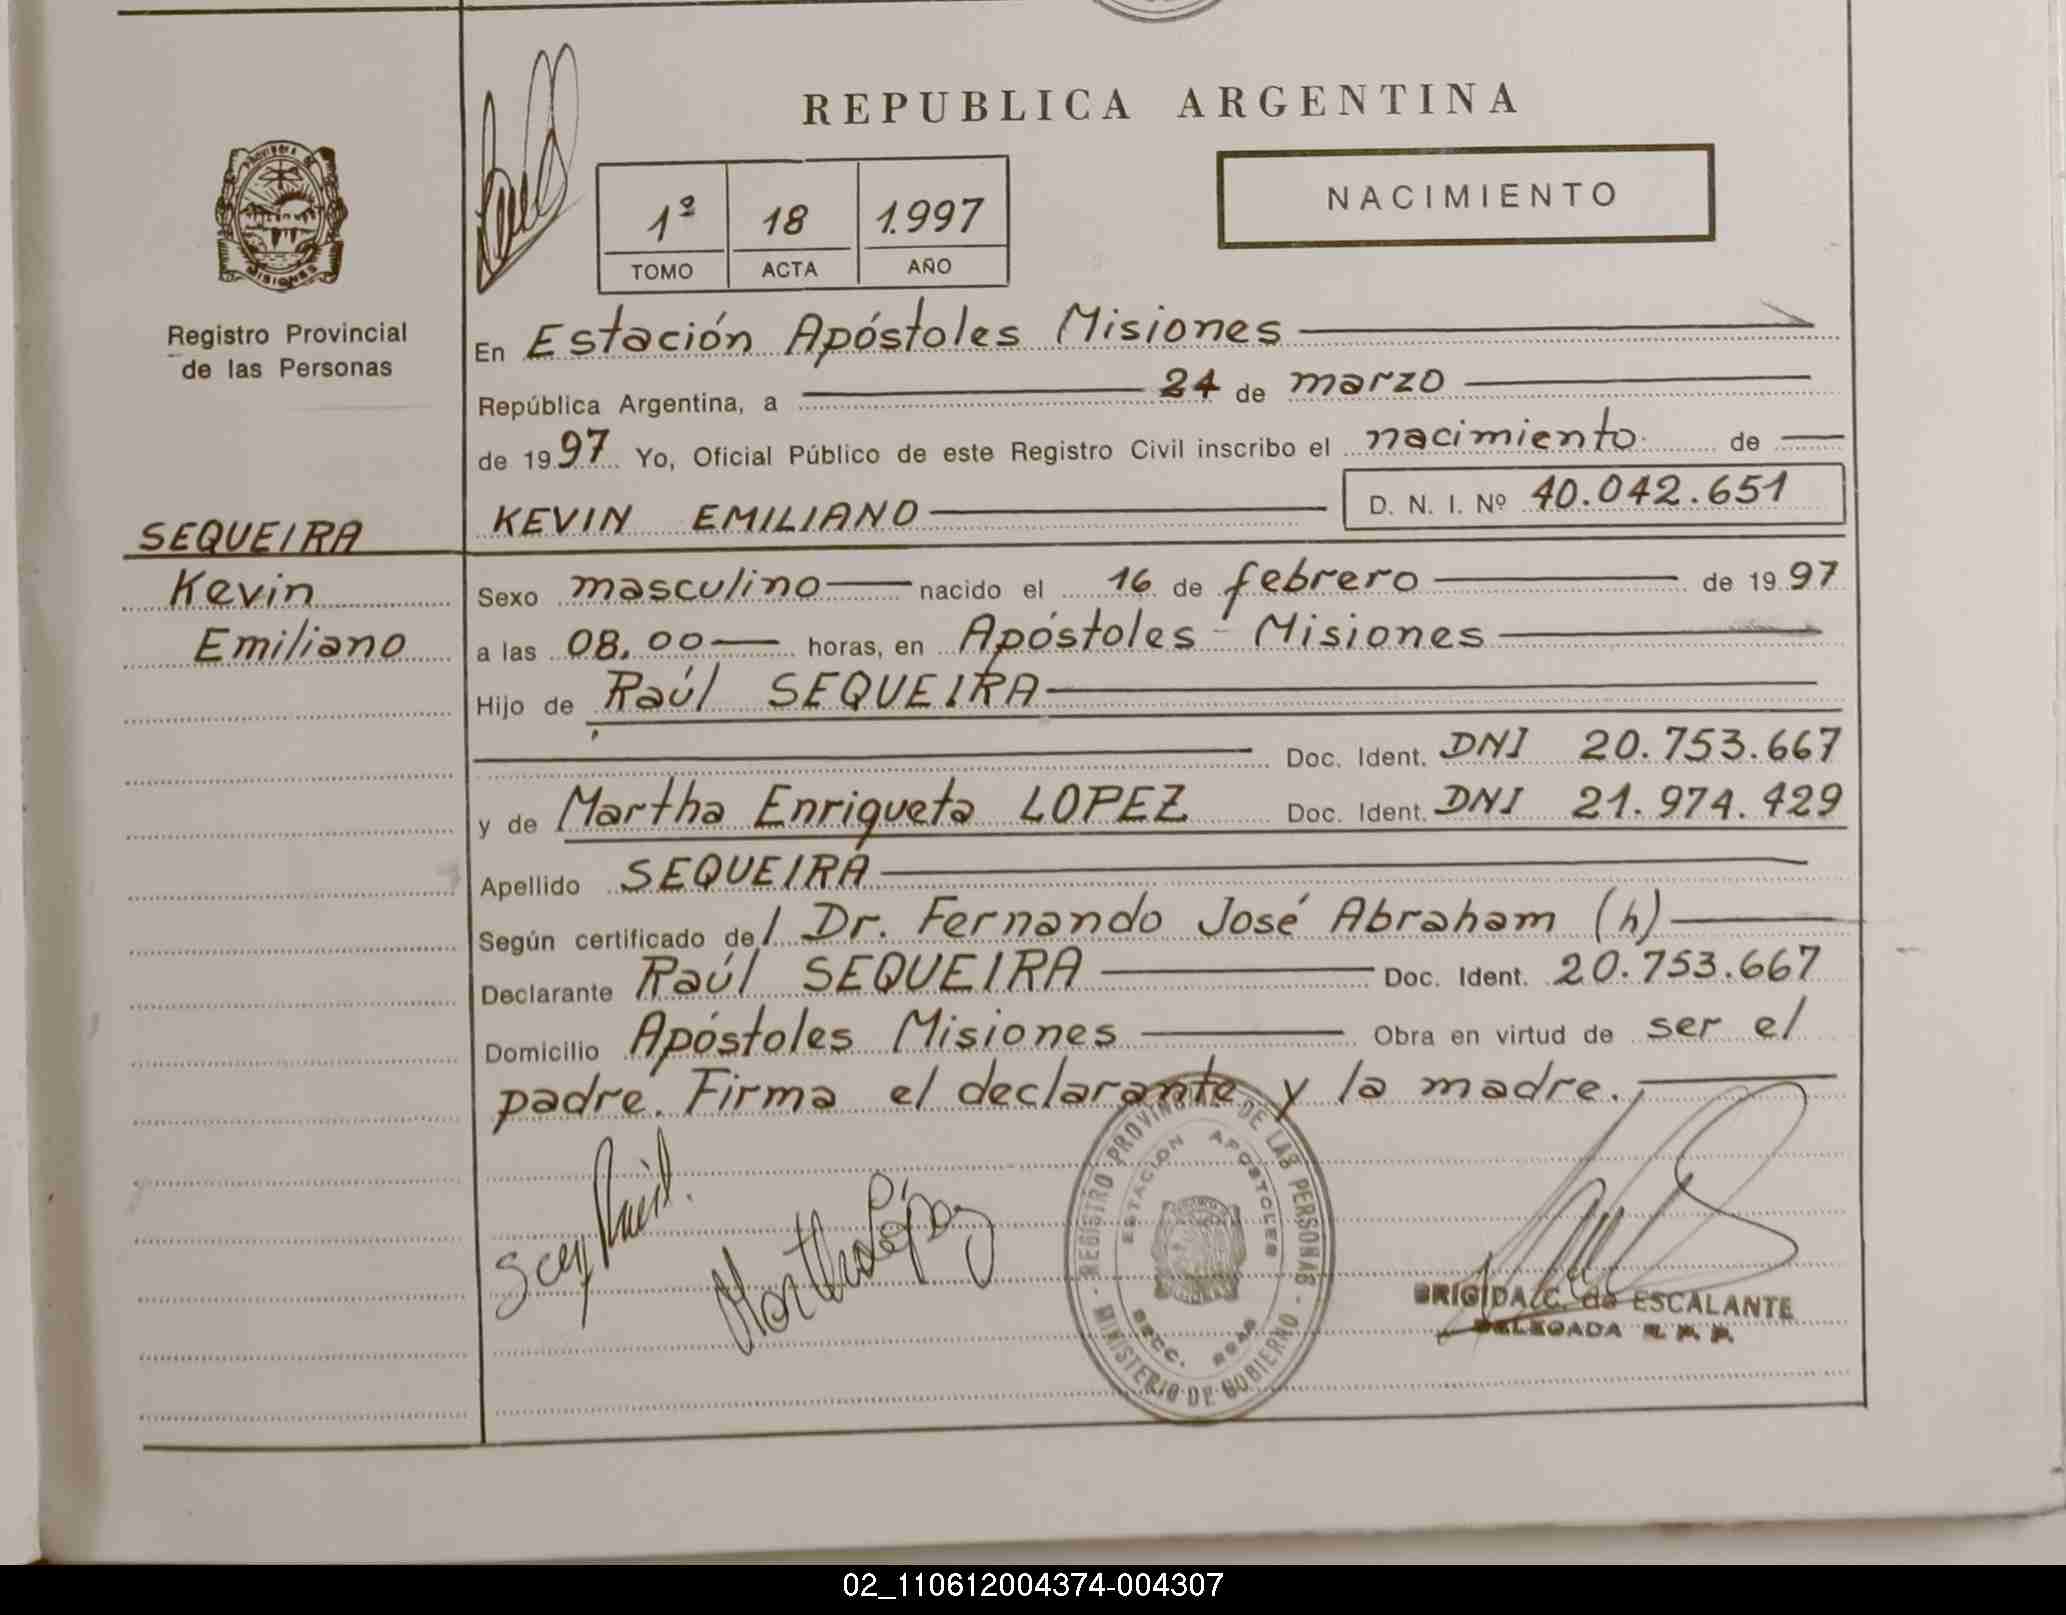 REPUBLICA ARGENTINA
PROVINCIA DE
MISIONES
Registro Provincial
de las Personas
1º 18 1.997
TOMO ACTA AÑO
NACIMIENTO
En Estación Apóstoles Misiones
República Argentina, a 24 de marzo
de 1997 Yo, Oficial Público de este Registro Civil inscribo el nacimiento de
KEVIN EMILIANO D. N. I. Nº 40.042.651
SEQUEIRA
Kevin
Emiliano
Sexo masculino nacido el 16 de febrero de 1997
a las 08,00 horas, en Apóstoles - Misiones
Hijo de Raúl SEQUEIRA
Doc. Ident. DNI 20.753.667
y de Martha Enriqueta LOPEZ Doc. Ident. DNI 21.974.429
Apellido SEQUEIRA
Según certificado del Dr. Fernando José Abraham (h)
Declarante Raúl SEQUEIRA Doc. Ident. 20.753.667
Domicilio Apóstoles Misiones Obra en virtud de ser el
padre. Firma el declarante y la madre.
REGISTRO PROVINCIAL DE LAS PERSONAS
ESTACION APOSTOLES
SECC.
MINISTERIO DE GOBIERNO
Martha López
BRIGIDA C. de ESCALANTE
DELEGADA R. P. P.
02_110612004374-004307